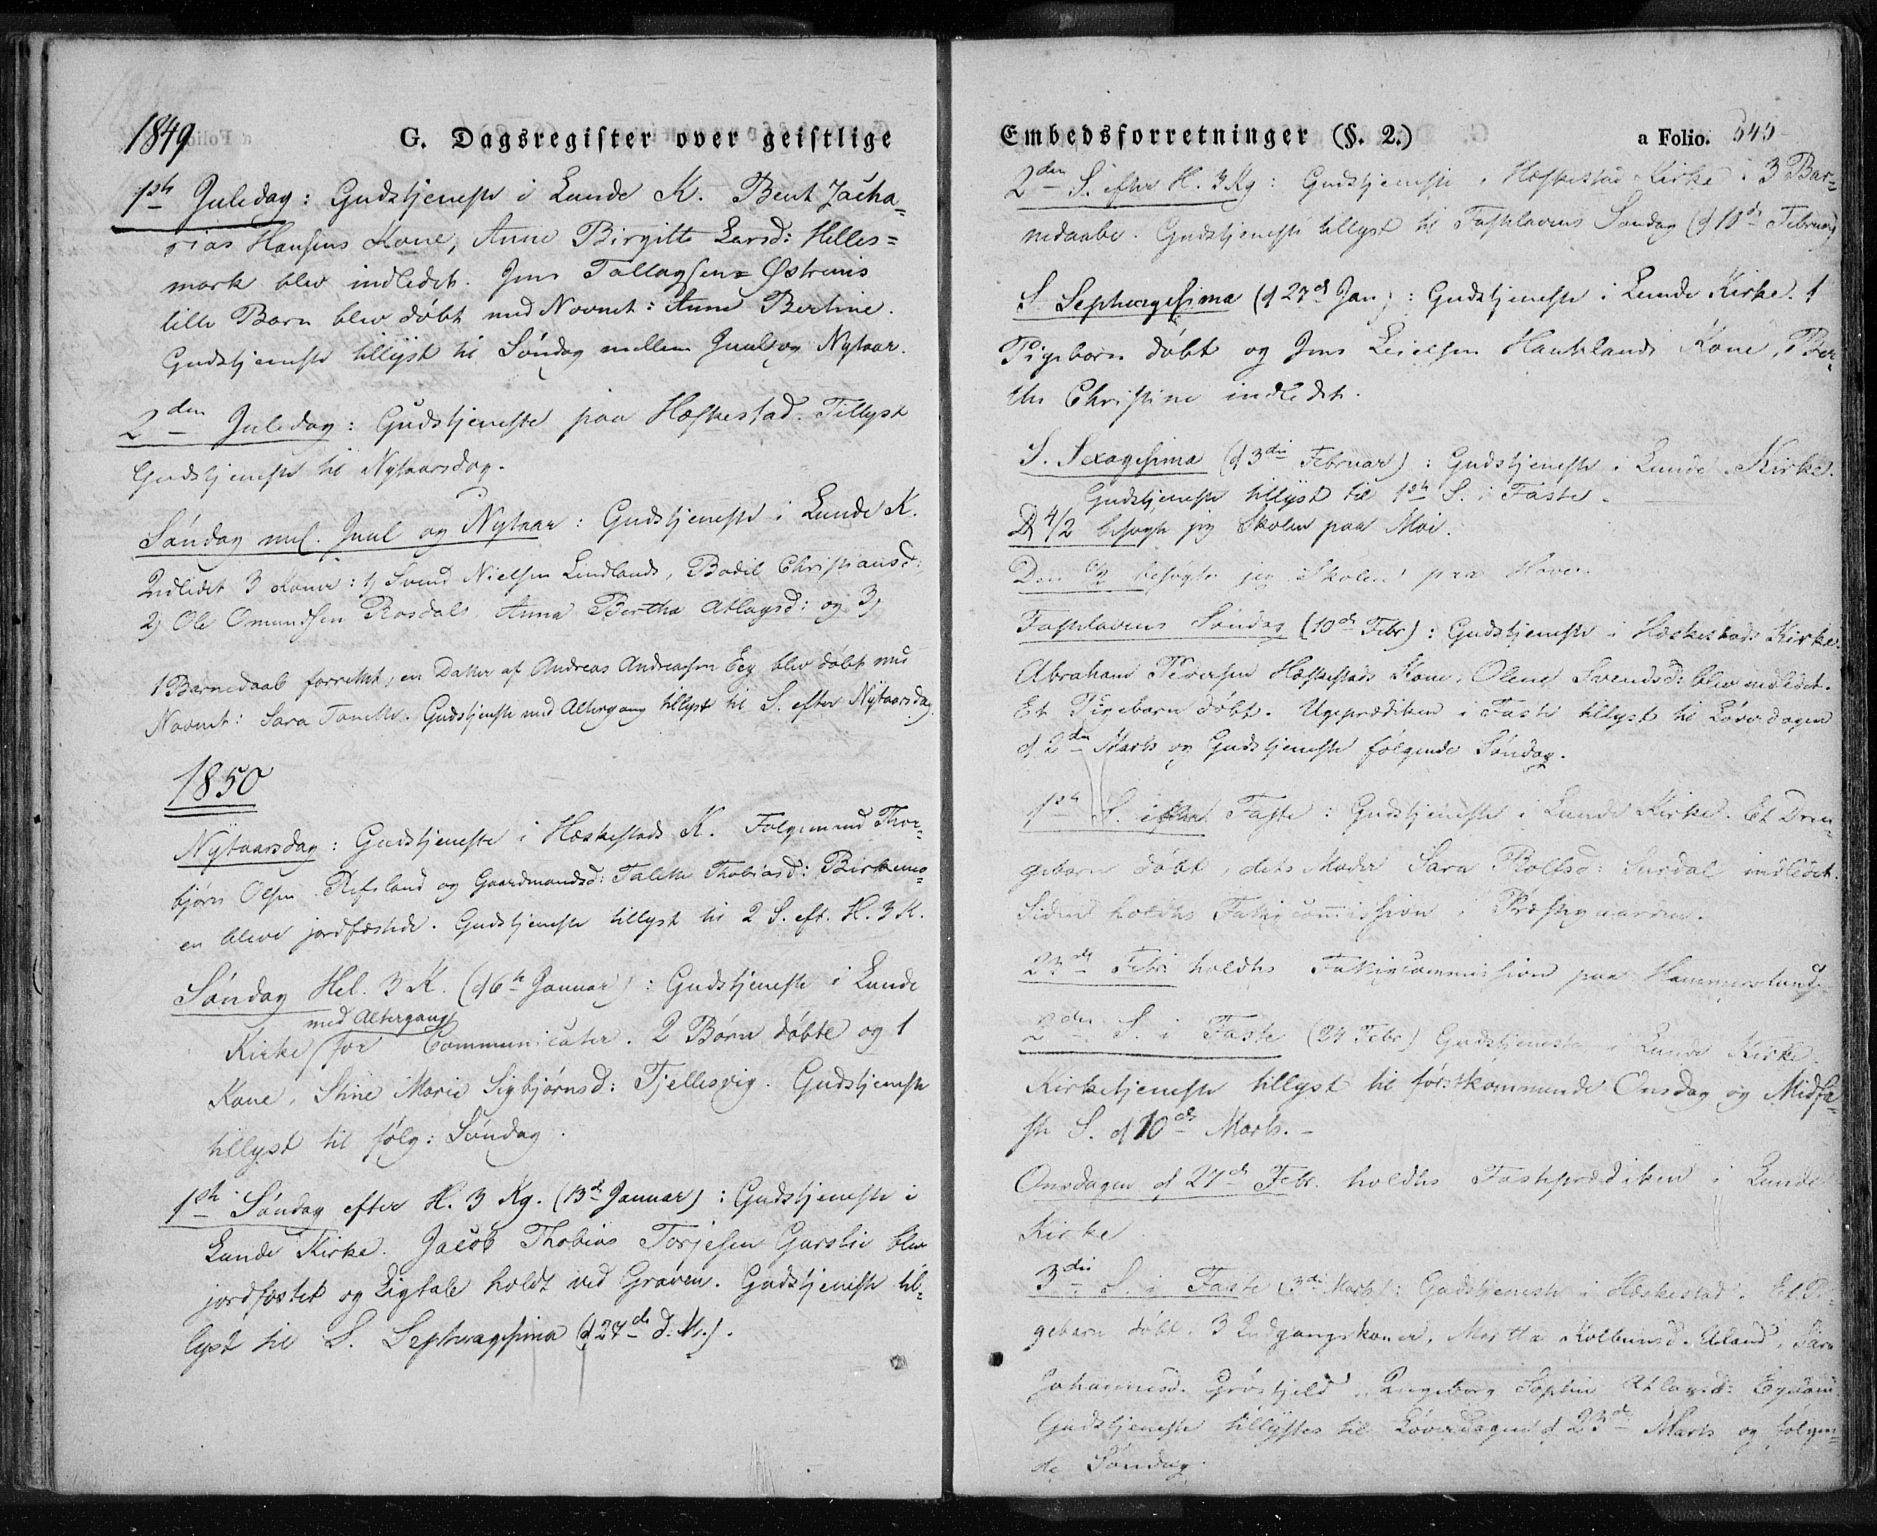 1849
G. Dagsregister over geistlige
1ste Juledag: Gudstjeneste i Lunde K. Bent Zacha=
rias Hansens Kone, Anne Birgitte Larsd: Helles=
mark blev indledet. Jens Tollagsen= Østreims
lille Barn blev døbt med Navnet: Anne Bertine.
Gudstjeneste tillyst til Søndag mellem Juul og Nytaar.
2den Juledag: Gudstjeneste paa Hæskestad. Tillyst
Gudstjeneste til Nytaarsdag.
Søndag mel. Juul og Nytaar: Gudstjeneste i Lunde K.
Indledet 3 Koner: 1) Svend Nielsen Lindlands, Bodil Christiansd:
2) Ole Omundsen Rosdals, Anna Bertha Atlagsd: og 3)
1 Barnedaab forrettet, en Datter af Andreas Andreasen Eeg blev døbt med
Navnet: Sara Tonette. Gudstjeneste med Altergang tillyst til S. efter Nytaarsdag.
1850
Nytaarsdag: Gudstjeneste i Hæskestads K. Folgemand Thor-
bjørn Olsen Refsland og Gaardmandsd: Talette Thobiasd: Birkemo-
en bleve jordfæstede. Gudstjeneste tillyst til 2 S. eft. H. 3 K.
Søndag Hel. 3 K. (d 6te Januar): Gudstjeneste i Lunde
med Altergang
Kirke for Communicater. 2 Børn døbte og 1
Kone, Stine Marie Sigbjørnsd: Tjellesvig. Gudstjeneste
tillyst til følg: Søndag.
1ste Søndag efter H. 3 Kg. (13de Januar): Gudstjeneste i
Lunde Kirke. Jacob Thobias Torjesen Garslie blev
jordfæstet og Ligtale holdt ved Graven. Gudstjeneste til-
lyst til S. Septuagesima (d 27de d. M.).
Embedsforretninger (§. 2.)
a Folio. 545
2den S. efter H. 3 Kg: Gudstjeneste i Hæskestad Kirke. 3 Bar=
nedaabe. Gudstjeneste tillyst til Fastelavens Søndag (d 10de Februar)
S. Septuagesima (d 27de Jan): Gudstjeneste i Lunde Kirke. 1
Pigebarn døbt og Jens Leielsen Hauklands Kone, Ber-
the Christine indledet.
S. Sexagesima (d 3die Februar): Gudstjeneste i Lunde Kirke.
Gudstjeneste tillyst til 1ste S. i Faste.
D 4/2 besøgte jeg Skolen paa Moi.
Den besøgte jeg Skolen paa Hoven.
Fastelavens Søndag (10de Febr): Gudstjeneste i Hæskestads Kirke.
Abraham Pedersen Hæskestads Kone, Olene Svendsd: blev indledet.
Et Pigebarn døbt. Ugeprædiken i Faste tillyst til Løverdagen
d 2den Marts og Gudstjeneste følgende Søndag.
1ste S. i Faste: Gudstjeneste i Lunde Kirke. Et Dren-
gebarn døbt, dets Moder Sara Roltsd: Surdal indledet.
Siden holdtes Fattigcommission i Præstegaarden.
23de Febr. holdtes Fattigcommission paa Hammersland.
2den S. i Faste (24 Febr) Gudstjeneste i Lunde Kirke.
Kirketjeneste tillyst til førstkommende Onsdag og Midfa-
ste S. d 10de Marts.
Onsdagen d 27de Febr. holdtes Fasteprædiken i Lunde
Kirke
3die S. i Faste (3die Marts): Gudstjeneste i Hæskestad. Et Pi-
gebarn døbt. 3 Indgangskoner, Martha Kolbeinsd. Aaland, Sara
Johannesd. Grøsfjeld, Ingeborg Sophie Atlagsd: Egdom.
Gudstjeneste tillystes til Løverdagen d 23de Marts og følgen-
de Søndag.